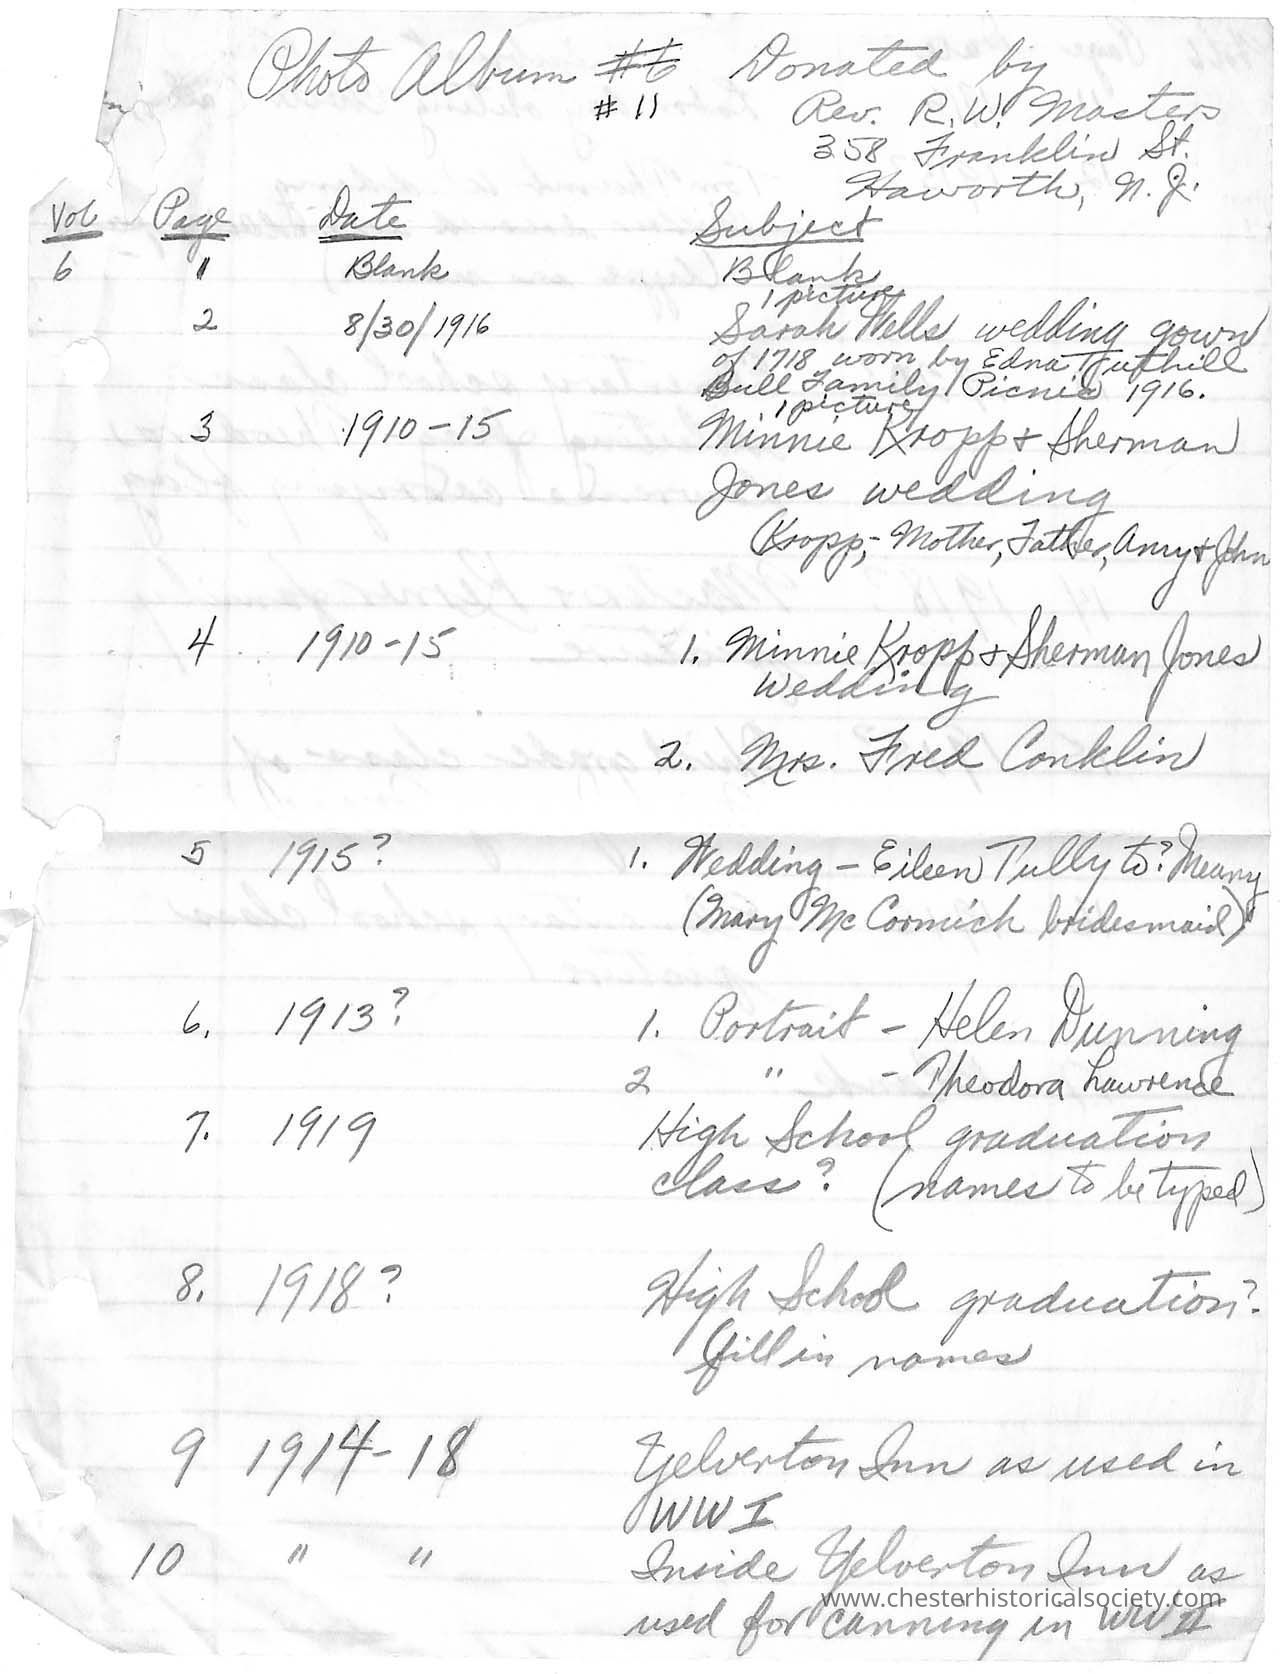 Photo Album #6 Donated by
# 11 Rev. R. W. Masters
358 Franklin St.
Haworth, N. J.
Vol Page Date Subject
6 " Blank Blank
1 picture
2 8/30/1916 Sarah Wells wedding gown
of 1718 worn by Edna Tuthill
Bull Family Picnic 1916.
1 picture
3 1910-15 Minnie Kropp & Sherman
Jones wedding
Kropp;- Mother, Father, Amy & John
4 1910-15 1. Minnie Kropp & Sherman Jones
Wedding
2. Mrs. Fred Conklin
5 1915? 1. Wedding - Eileen Tully to? Meany
(Mary McCormick bridesmaid)
6. 1913? 1. Portrait - Helen Dunning
2 " - Theodora Lawrence
7. 1919 High School graduation
class? (names to be typed)
8. 1918? High School graduation?
fill in names
9 1914-18 Yelverton Inn as used in
WW I
10 " " Inside Yelverton Inn as
used for canning in WW II
www.chesterhistoricalsociety.com